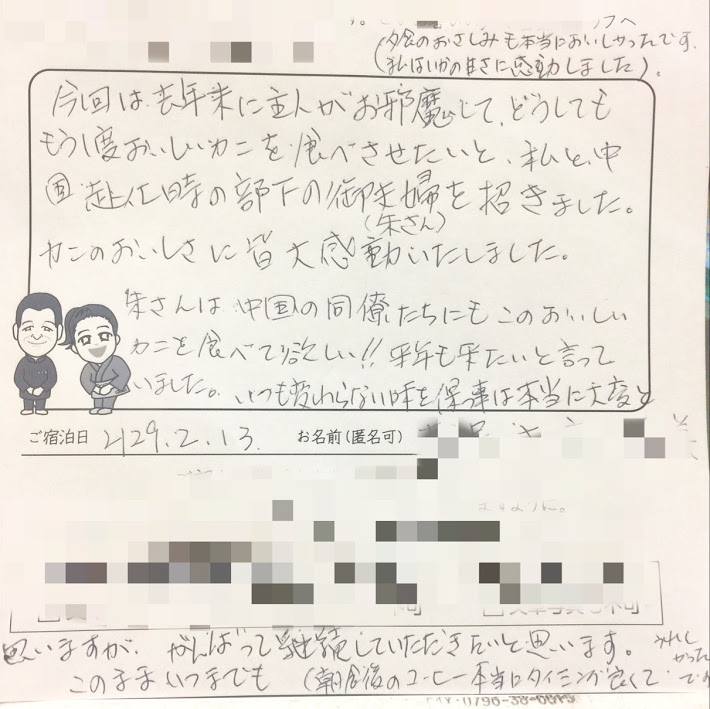 (夕食のおさしみも本当においしかったです。
(私はいかの甘さに感動しました)。
今回は、去年末に主人がお邪魔して、どうしても
もう1度おいしいカニを食べさせたいと、私と中
国赴任時の部下の御夫婦を招きました。
(朱さん)
カニのおいしさに皆大感動いたしました。
朱さんは中国の同僚たちにもこのおいしい
カニを食べて欲しい!!来年も来たいと言って
いました。いつも変わらない味を保つ事は本当に大変と
ご宿泊日 H29.2.13. お名前(匿名可)
思いますが、がんばって継続していただきたいと思います。
このままいつまでも
(朝食後のコーヒー本当にタイミングが良くて
うれし
かった
です